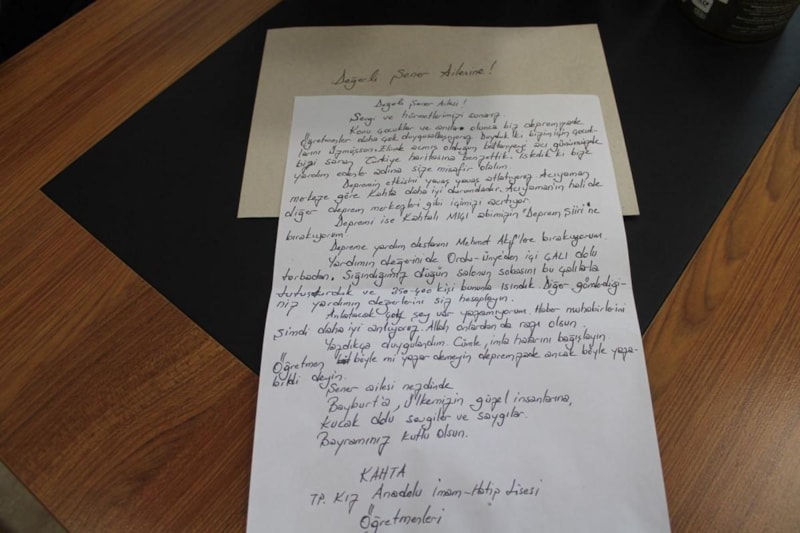 Değerli Şener Ailesine!
Değerli Şener Ailesi!
Sevgi ve hürmetlerimizi sunarız.
Konu çocuklar ve olunca biz depremzede
Öğretmenler daha çok duygusallaşıyoruz. Duyduk ki bizim için çocuk-
larını üzmüşsün. Elinde olduğun battaniyeyi acı günümüzde
bizi saran Türkiye haritasına benzettik. İstedik ki bize
yardım edenler adına size misafir olalım.
Depremin etkisini yavaş yavaş atlatıyoruz. Adıyaman
merkeze göre Kahta daha iyi durumdadır. Adıyaman'ın hali de
diğer deprem merkezleri gibi içimizi acıtıyor.
Depremi ise Kahtalı MIÇI abimizin "Deprem Şiiri"ne
bırakıyorum!
Depreme yardım destanını Mehmet Akif'lere bırakıyorum.
Yardımın değerini de Ordu-Ünye'den içi ÇALI dolu
torbadan. Sığındığımız düğün salonun sobasını bu çalılarla
tutuşturduk ve 350-400 kişi bununla ısındık. Diğer gönderdiği-
niz yardımın değerlerini siz hesaplayın.
Anlatacak çok şey var yazamıyorum. Haber muhabirlerini
şimdi daha iyi anlıyoruz. Allah onlardan da razı olsun.
Yazdıkça duygulandım. Cümle, imla hatarını bağışlayın.
Öğretmen böyle mi yazar demeyin depremzede ancak böyle yaza-
bildi deyin.
Şener ailesi nezdinde
Bayburt'a, Ülkemizin güzel insanlarına,
kucak dolu sevgiler ve saygılar.
Bayramınız kutlu olsun.
KAHTA
TP. Kız Anadolu İmam-Hatip Lisesi
Öğretmenleri